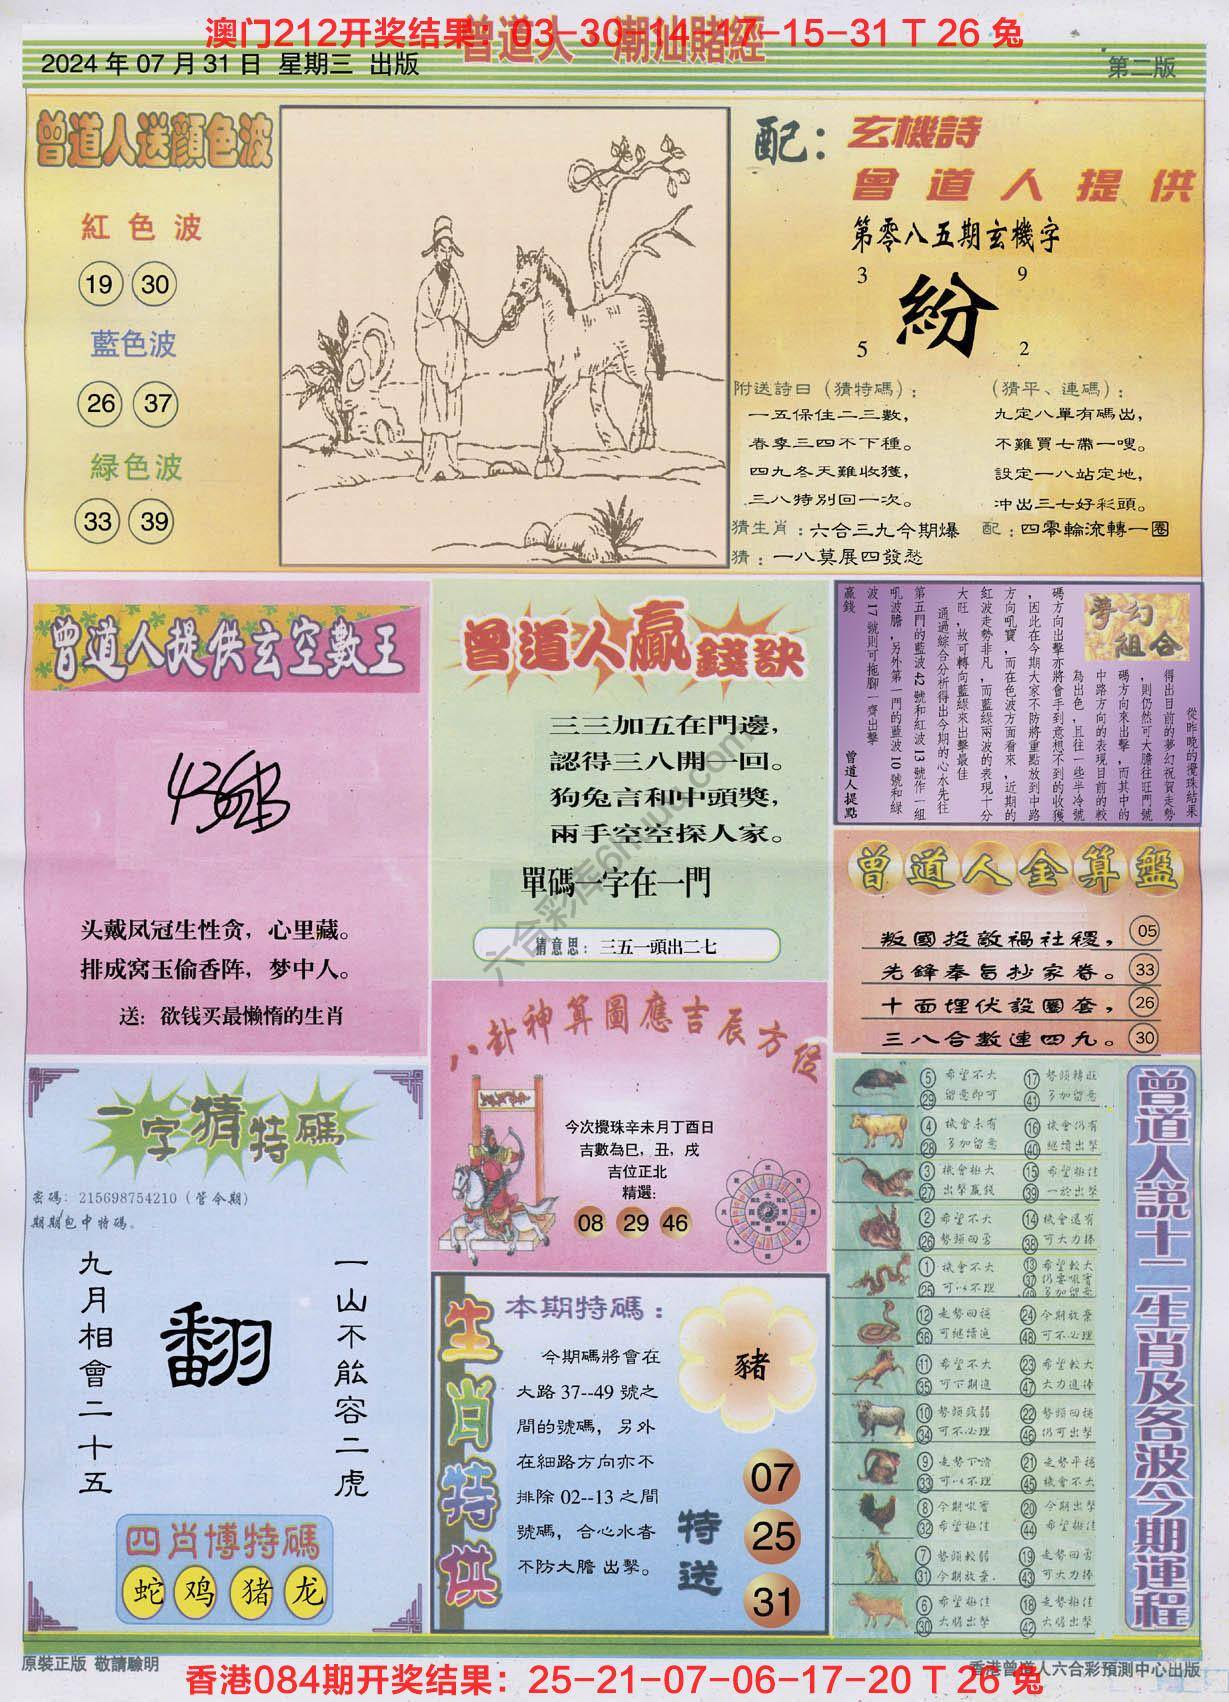 澳门212开奖结果：03-30-14-17-15-31 T 26 兔
曾道人·潮汕賭經
2024 年 07 月 31 日 星期三 出版
第二版
曾道人送顏色波
紅色波
19 30
藍色波
26 37
緑色波
33 39
配：玄機詩
曾道人提供
第零八五期玄機字
3 9
紛
5 2
附送詩日（猜特碼）：
一五保住二三數，
春季三四不下種。
四九冬天難收獲，
三八特別回一次。
（猜平、連碼）：
九定八單有碼出，
不難買七帶一嗖。
設定一八站定地，
冲出三七好彩頭。
猜生肖：六合三九今期爆
配：四零輪流轉一圈
猜：一八莫展四發愁
曾道人提供玄空數王
头戴凤冠生性贪，心里藏。
排成窝玉偷香阵，梦中人。
送：欲钱买最懒惰的生肖
曾道人贏錢訣
三三加五在門邊，
認得三八開一回。
狗兔言和中頭獎，
兩手空空探人家。
單碼一字在一門
猜意思：三五一頭出二七
六合彩库6huuu.com
夢幻組合
從昨晚的攪珠結果
得出目前的夢幻祝賀走勢
，則仍然可大膽往旺門號
碼方向來出擊，而其中的
中路方向的表現目前的較
為出色，且往一些半冷號
碼方向出擊亦將會手到意想不到的收獲
，因此在今期大家不防將重點放到中路
方向吼寶，而在色波方面看來，近期的
紅波走勢非凡，而藍綠兩波的表現十分
大旺，故可轉向藍綠來出擊最佳
通過綜合分析得出今期的心水先往
第五門的藍波42號和紅波13號作一組
吼波膽，另外第一門的藍波10號和綠
波17號則可拖腳一齊出擊
贏錢
曾道人提點
曾道人金算盤
叛國投敵禍社稷， 05
先鋒奉旨抄家眷。 33
十面埋伏設圈套， 26
三八合數連四九。 30
八卦神算圖應吉辰方位
今次攪珠辛未月丁酉日
吉數為巳，丑，戌
吉位正北
精選：
08 29 46
一字猜特碼
密碼：215698754210（管今期）
期期包中特碼。
九月相會二十五
翻
一山不能容二虎
四肖博特碼
蛇 鸡 猪 龙
生肖特供
本期特碼：
今期碼將會在
大路 37--49 號之
間的號碼，另外
在細路方向亦不
排除 02--13 之間
號碼，合心水者
不防大膽 出擊。
豬
特送
07
25
31
曾道人説十二生肖及各波今期運程
5 希望不大 17 勢頭轉旺
29 留意即可 41 多加留意
4 機會未有 16 機會仍有
28 多加留意 40 繼續出擊
3 機會極大 15 希望極佳
27 出擊贏錢 39 一於出擊
2 希望不大 14 機會還有
26 勢頭回勇 38 可大力捧
1 機會不大 13 希望較大
25 可以不理 37 仍要吼實
49 多加留意
12 走勢回穩 24 今期放棄
36 可繼續追 48 可不必理
11 希望不大 23 希望較大
35 可下期追 47 大力追捧
10 勢頭疲弱 22 勢頭回穩
34 可不必理 46 仍可出擊
9 走勢下滑 21 走勢平穩
33 可以不理 45 機會不大
8 今期吼實 20 今期出擊
32 希望極佳 44 希望極佳
7 勢頭較弱 19 走勢回勇
31 今期放棄. 43 可大力捧
6 希望極佳 18 走勢極佳
30 大膽出擊 42 大膽出擊
原裝正版 敬請驗明
香港曾道人六合彩預測中心出版
香港084期开奖结果：25-21-07-06-17-20 T 26 兔